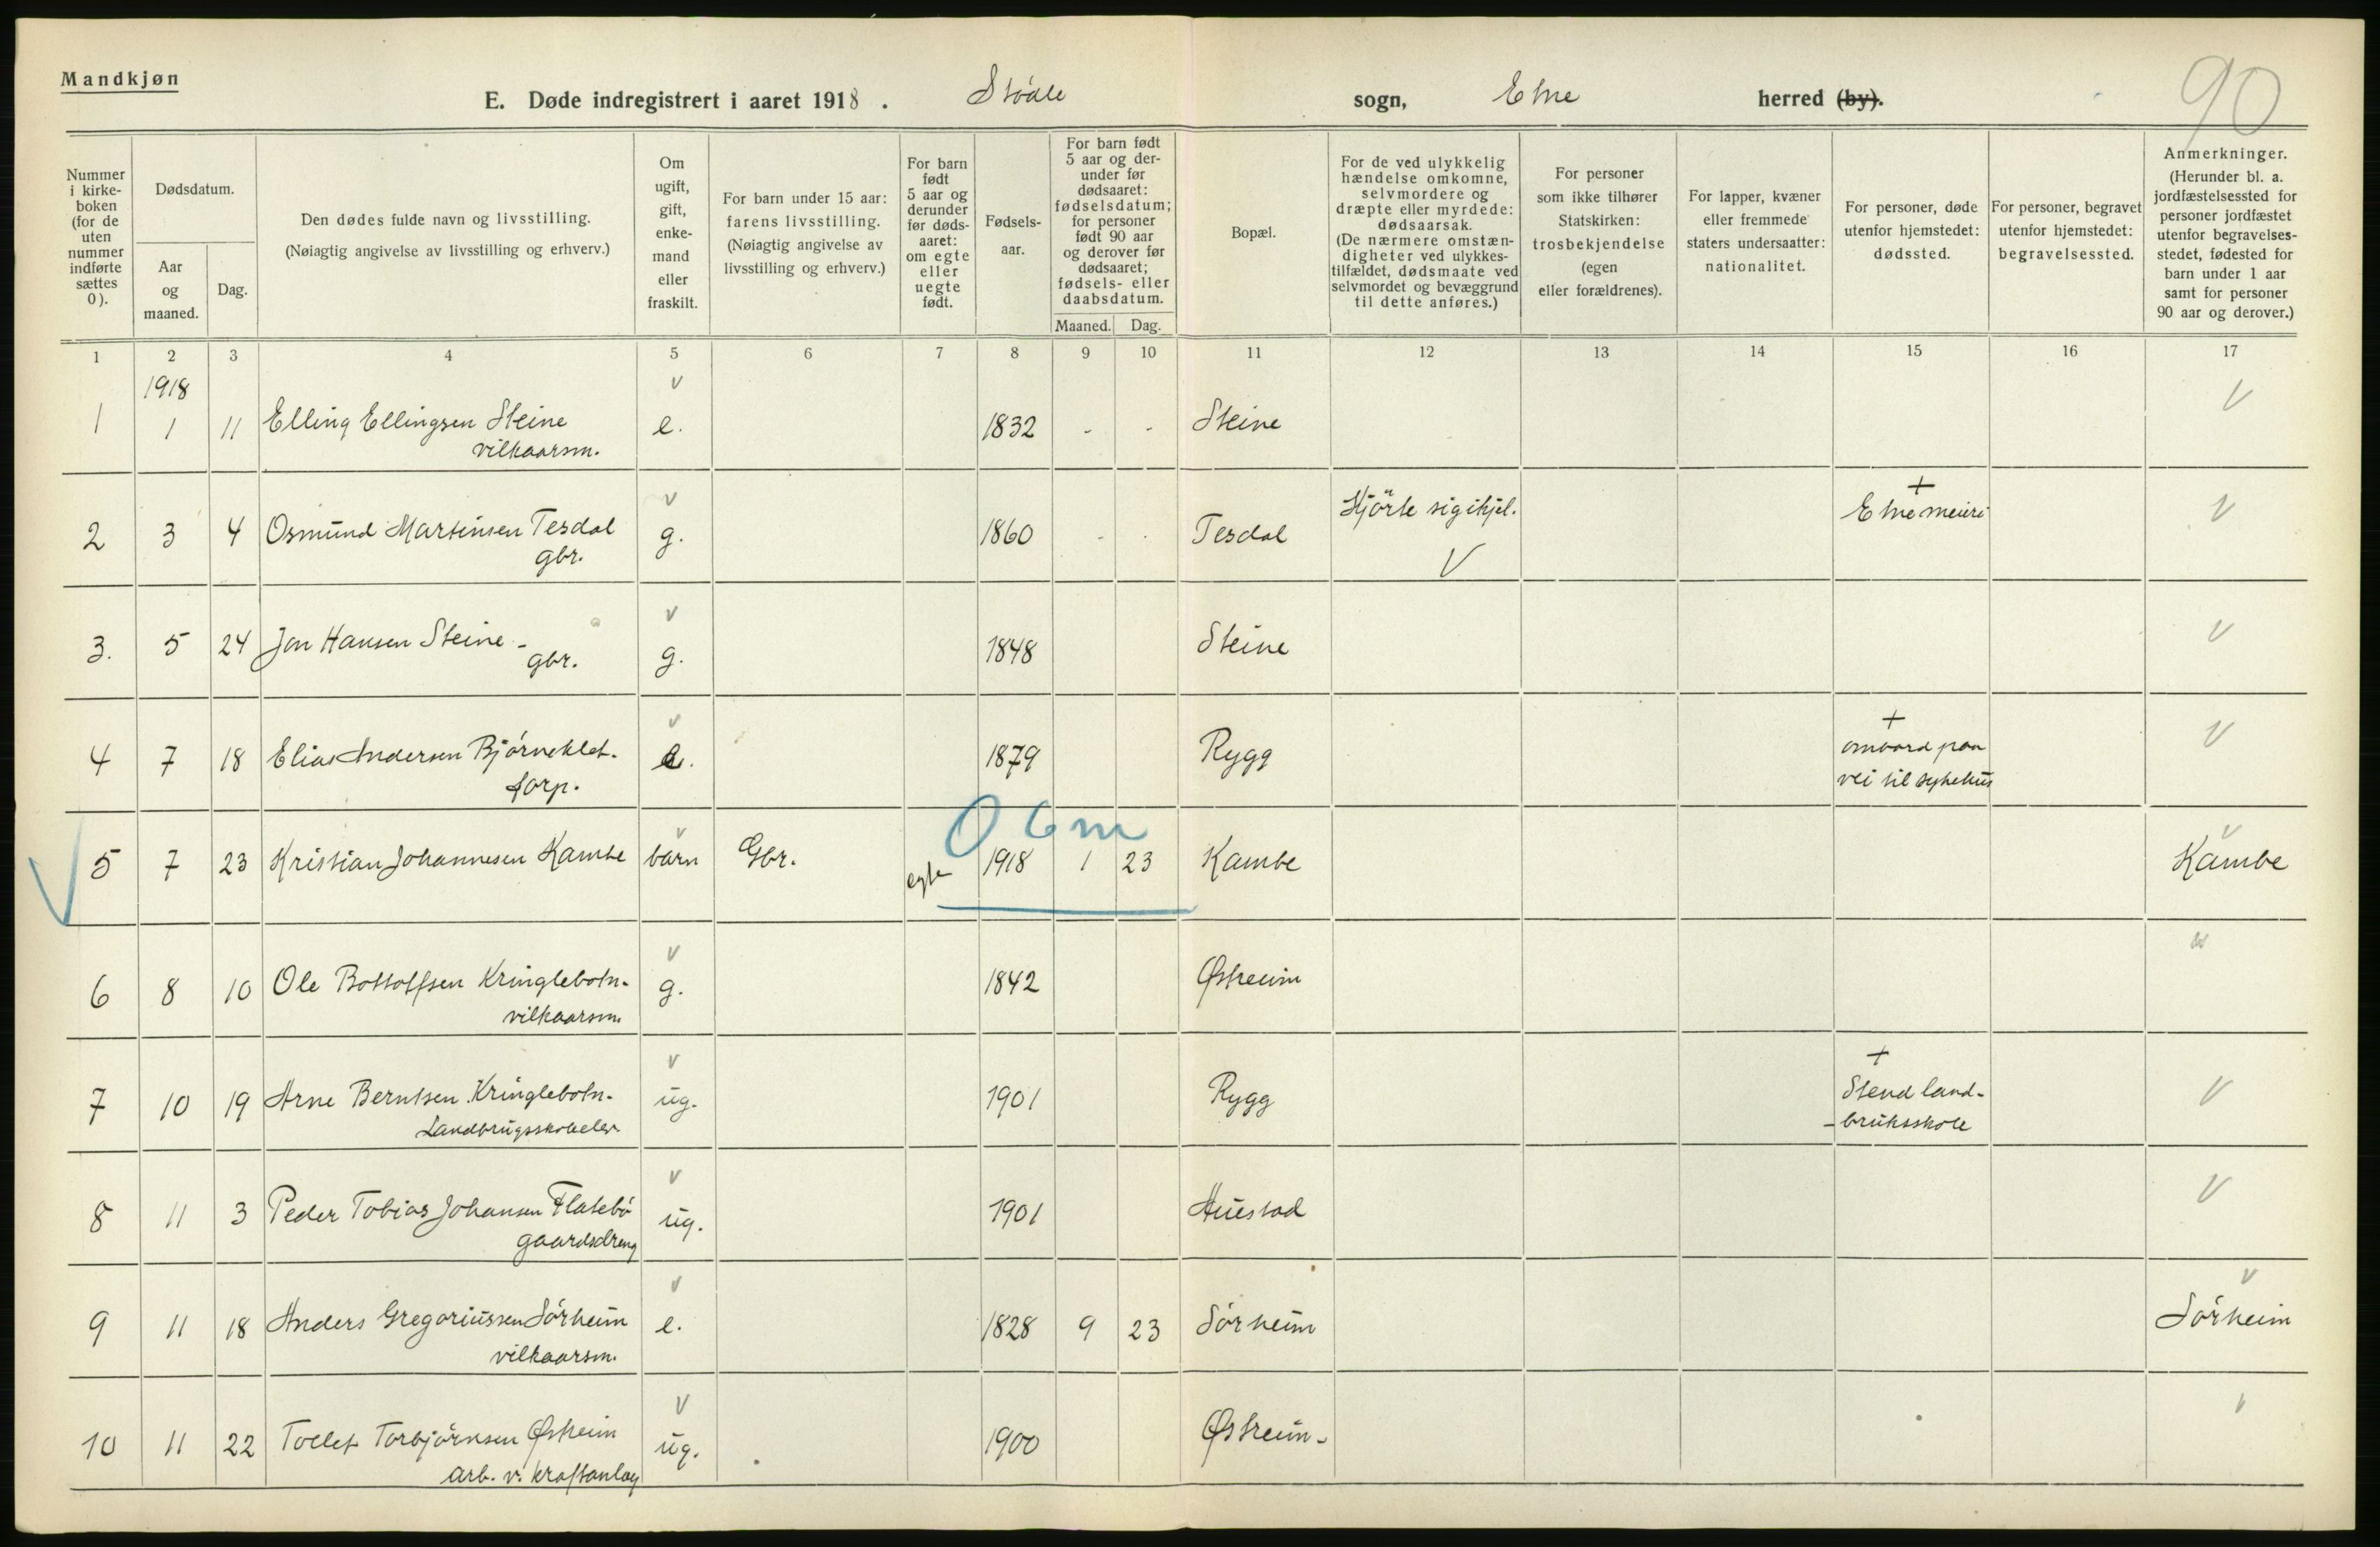 Mandkjøn
90
E. Døde indregistrert i aaret 1918 . Stödle sogn, Etne herred (by).
Nummer i kirke-boken (for de uten nummer indførte sættes 0).
Dødsdatum.
Aar og maaned.
Dag.
Den dødes fulde navn og livsstilling.
(Nøiagtig angivelse av livsstilling og erhverv.)
Om ugift, gift, enke-mand eller fraskilt.
For barn under 15 aar: farens livsstilling. (Nøiagtig angivelse av livsstilling og erhverv.)
For barn født 5 aar og derunder før døds-aaret: om egte eller uegte født.
Fødsels-aar.
For barn født 5 aar og der-under før dødsaaret: fødselsdatum; for personer født 90 aar og derover før dødsaaret; fødsels- eller daabsdatum.
Maaned. Dag.
Bopæl.
For de ved ulykkelig hændelse omkomne, selvmordere og dræpte eller myrdede: dødsaarsak. (De nærmere omstæn-digheter ved ulykkes-tilfældet, dødsmaate ved selvmordet og bevæggrund til dette anføres.)
For personer som ikke tilhører Statskirken: trosbekjendelse (egen eller forældrenes).
For lapper, kvæner eller fremmede staters undersaatter: nationalitet.
For personer, døde utenfor hjemstedet: dødssted.
For personer, begravet utenfor hjemstedet: begravelsessted.
Anmerkninger. (Herunder bl. a. jordfæstelsessted for personer jordfæstet utenfor begravelses-stedet, fødested for barn under 1 aar samt for personer 90 aar og derover.)
1 2 3 4 5 6 7 8 9 10 11 12 13 14 15 16 17
1918
1 1 11 Elling Ellingsen Steine e. 1832 - - Steine
vilkaarsm.
2 3 4 Osmund Martinsen Tesdal g. 1860 - - Tesdal Skjöte sig ihjel. + Etne meieri
gbr.
3. 5 24 Jon Hansen Steine - g. 1848 Steine
gbr.
4 7 18 Elias Andersen Bjørneklet. e. 1879 Rygg + ombord paa
forp. vei til sykehus
0 6 m
5 7 23 Kristian Johannesen Kambe barn Gbr. egte 1918 1 23 Kambe Kambe
6 8 10 Ole Bottolfsen Kringlebotn. g. 1842 Østreim
vilkaarsm.
7 10 19 Arne Berntsen Kringlebotn. ug. 1901 Rygg + Stend land-
Landbrugsskoleelev -bruksskole
8 11 3 Peder Tobias Johansen Flatebö ug. 1901 Austad
gaardsdreng
9 11 18 Anders Gregoriussen Sörheim e. 1828 9 23 Sörheim Sörheim
vilkaarsm.
10 11 22 Tollef Torbjörnsen Østreim ug. 1900 Østreim -
arb. v. kraftanlæg